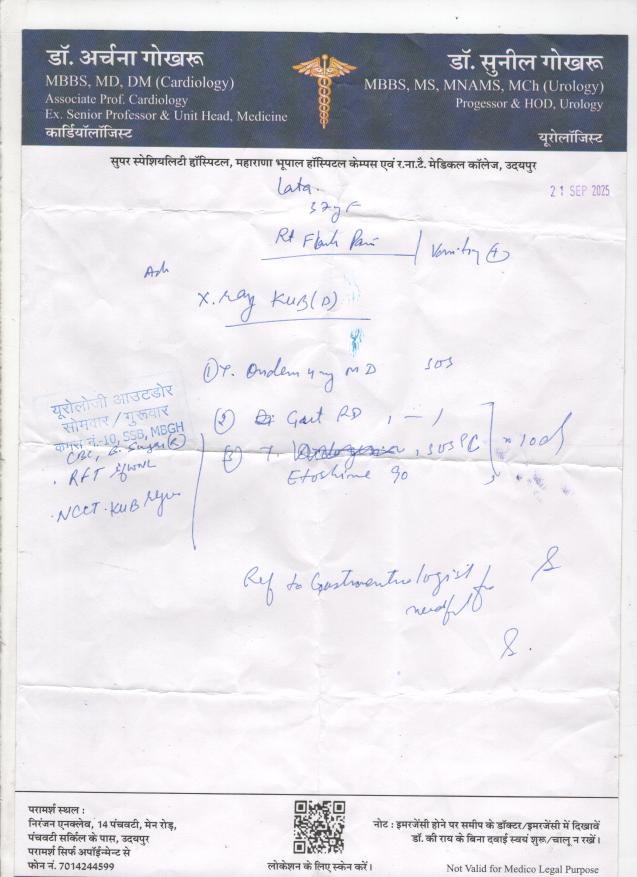 डॉ. अर्चना गोखरू
MBBS, MD, DM (Cardiology)
Associate Prof. Cardiology
Ex. Senior Professor & Unit Head, Medicine
कार्डियॉलॉजिस्ट
डॉ. सुनील गोखरू
MBBS, MS, MNAMS, MCh (Urology)
Progessor & HOD, Urology
यूरोलॉजिस्ट
सुपर स्पेशियलिटी हॉस्पिटल, महाराणा भूपाल हॉस्पिटल कैम्पस एवं र.ना.टै. मेडिकल कॉलेज, उदयपुर
Lata.
21 SEP 2025
37yF
Rt Flank Pain
Vomiting (+)
Adv
X.ray KUB (D)
(1) T. Ondem 4 mg MD SOS
यूरोलॉजी आउटडोर
सोमवार / गुरूवार
कमरा नं.-10, SSB, MBGH
(2) RD, 1 - 1
CBC, B. Sugar (R)
(3) T. , SOS PC
x 10 d
RFT WNL
Etoshine 90
NCCT. KUB
Ref to Gastroentrologist for
needful
परामर्श स्थल :
निरंजन एनक्लेव, 14 पंचवटी, मेन रोड़,
पंचवटी सर्किल के पास, उदयपुर
परामर्श सिर्फ अपॉईन्मेन्ट से
फोन नं. 7014244599
लोकेशन के लिए स्केन करें।
नोट : इमरजेंसी होने पर समीप के डॉक्टर/इमरजेंसी में दिखावें
डॉ. की राय के बिना दवाई स्वयं शुरू/चालू न रखें।
Not Valid for Medico Legal Purpose